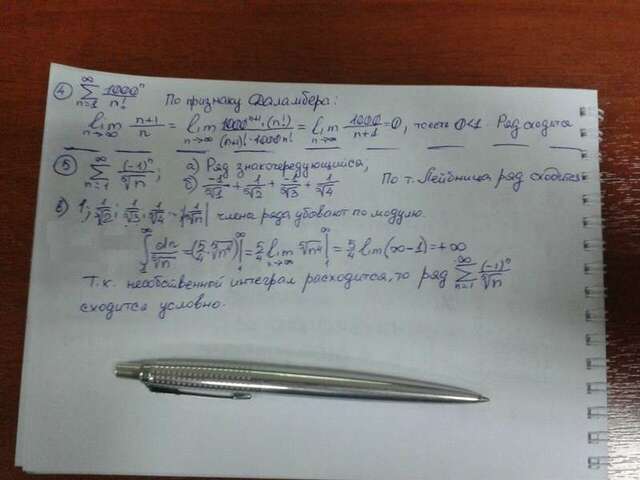 ④ ∑_{n=1}^{∞} 1000ⁿ/n! По признаку Даламбера:
lim_{n→∞} n+1/n = lim_{n→∞} 1000ⁿ⁺¹·(n!)/(n+1)!·1000ⁿ = lim_{n→∞} 1000/n+1 = 0, то есть 0<1. Ряд сходится
⑤ ∑_{n=1}^{∞} (-1)ⁿ/⁵√n; а) Ряд знакочередующийся,
б) -1/⁵√1 + 1/⁵√2 + -1/⁵√3 + 1/⁵√4 По т. Лейбница ряд сходится
в) 1; 1/⁵√2; 1/⁵√3; 1/⁵√4 члены ряда убывают по модулю.
∫_{1}^{∞} dn/⁵√n = (5/4·⁵√n⁴)|_{1}^{∞} = 5/4 lim_{n→∞} ⁵√n⁴|_{1}^{∞} = 5/4 lim(∞-1) = +∞
Т.к. несобственной интеграл расходится, то ряд ∑_{n=1}^{∞} (-1)ⁿ/⁵√n
сходится условно.